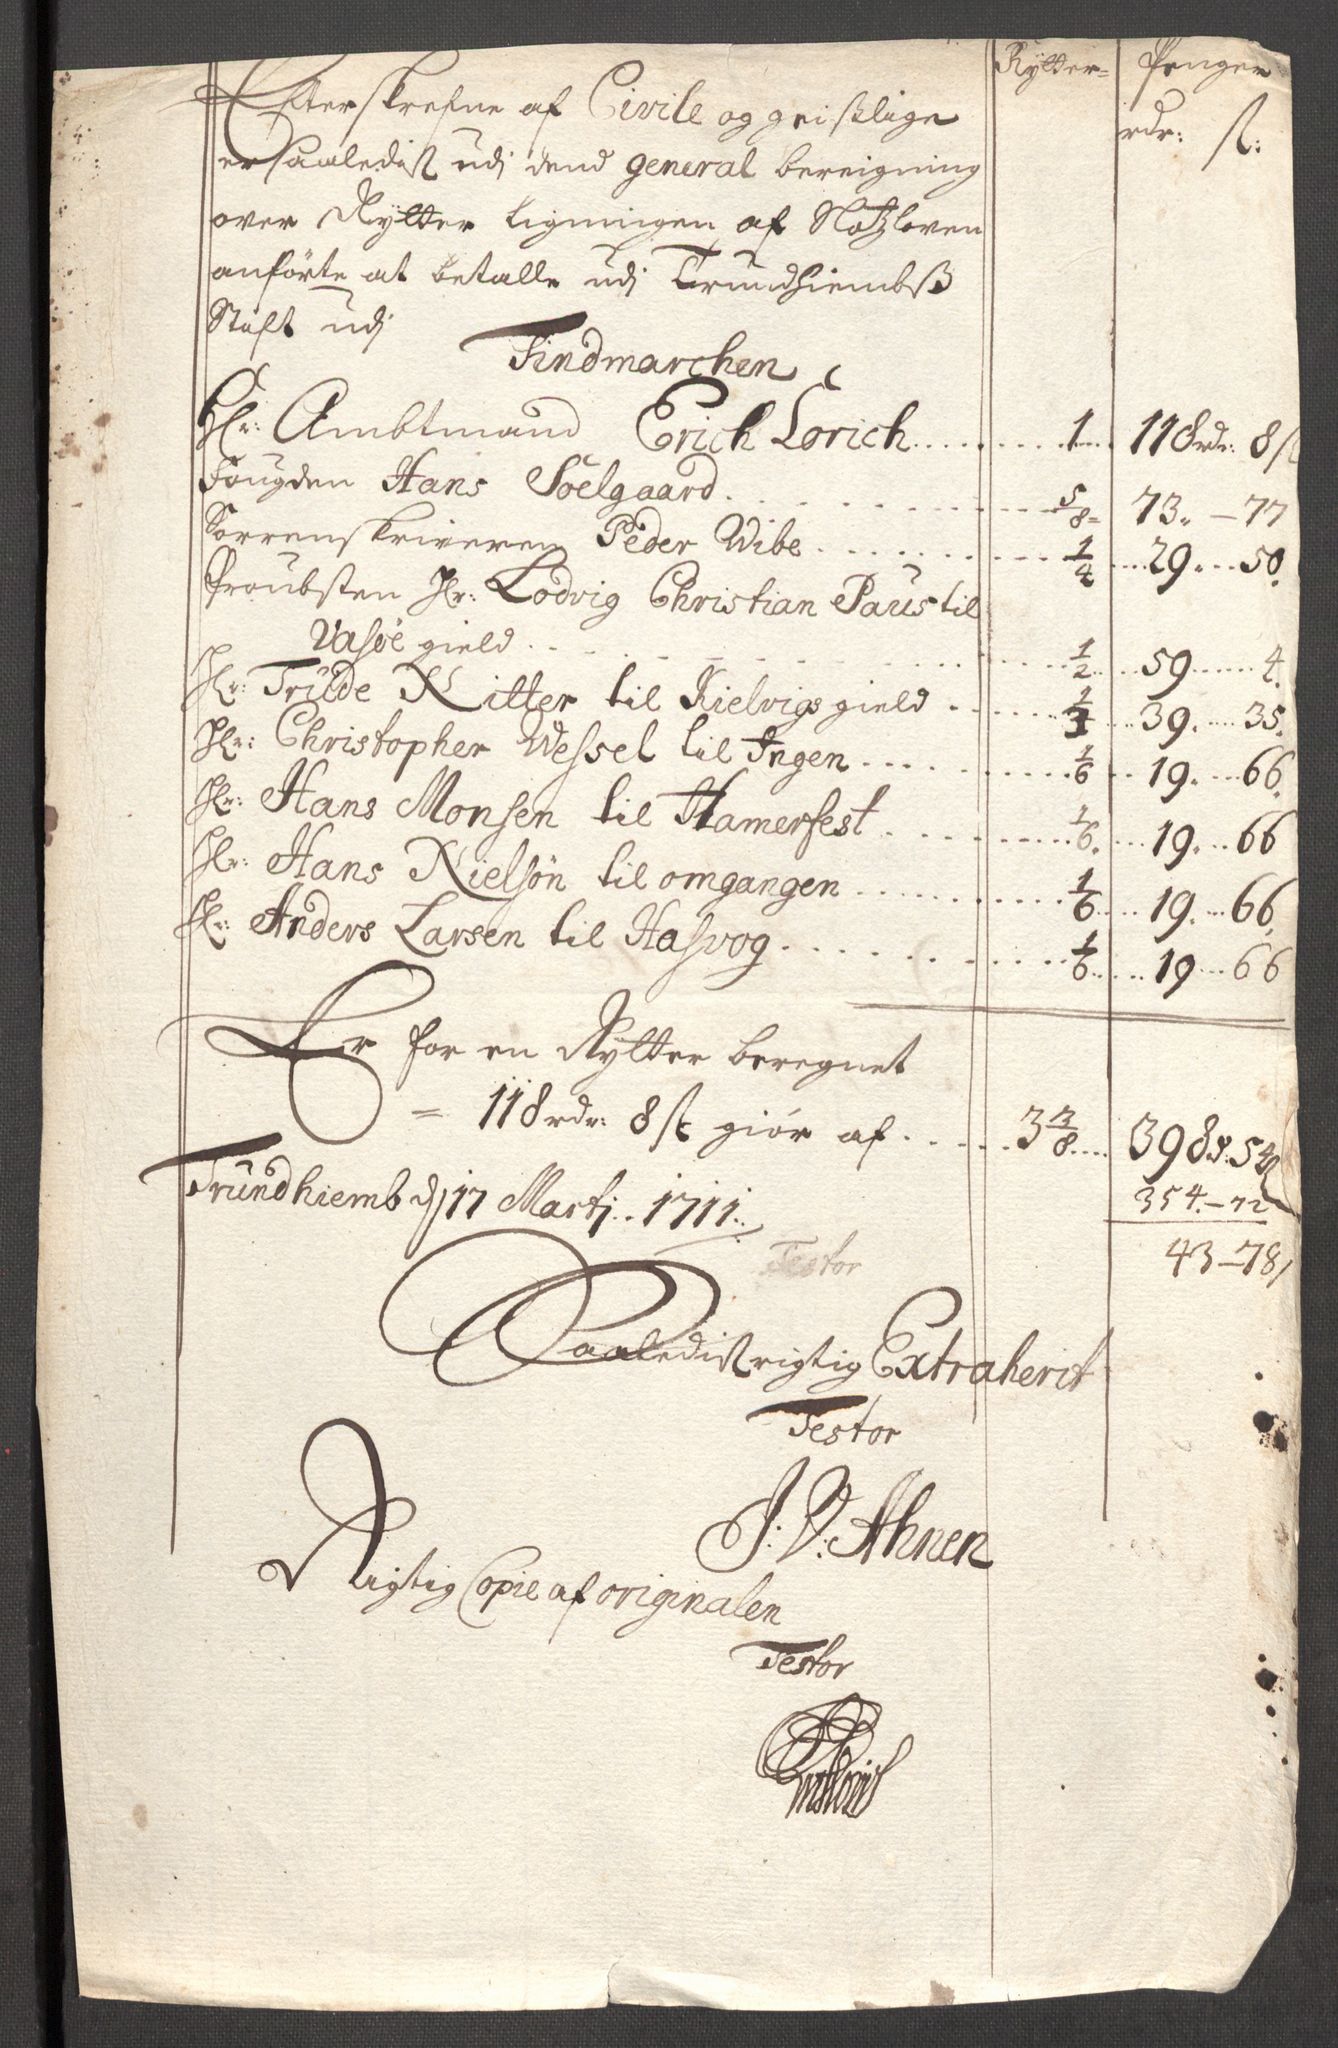 Rytter= Penger
rdr: ſk:
Efterskrefne af Civile og geistlige
er saaledist udj dend general bereigning
over Rytter ligningen af Slotzloven
anförte at betalle udj Trundhiembß
Stift udj
Findmarchen
Hr: Ambtmand Erich Lorich ........ 1 .... 118 rdr: 8 ſk
Fougden Hans Soelgaard ........ 5/8 = 73. — 77
Sorrenskriveren Peder Wibe ........ 1/4 ... 29. ... 50.
Proubsten Hr: Lodvig Christian Paus til
Vasöe gield ........ 1/2 ... 59 ...... 4.
Hr: Trüde Nitter til Kielvigs gield ........ 1/3 ... 39. ... 35.
Hr: Christopher Wessel til Ingen ........ 1/6 ... 19. ... 66.
Hr: Hans Monsen til Hamerfest ........ 1/6. ... 19. ... 66
Hr: Hans Nielsön til omgangen ........ 1/6 ... 19. ... 66.
Hr: Anders Larsen til Hasvog ........ 1/6 ... 19 ... 66
Er for en Rytter beregnet
= 118 rdr: 8 ſk giör af ..... 3 3/8 .... 398 d: 54
354. — 72
Trundhiemb d 17 Martj: 1711.
43 — 78
Testor
Saaledist rigtig Extraherit
Testor
J: V: Ahnen
Rigtig Copie af originalen
Testor